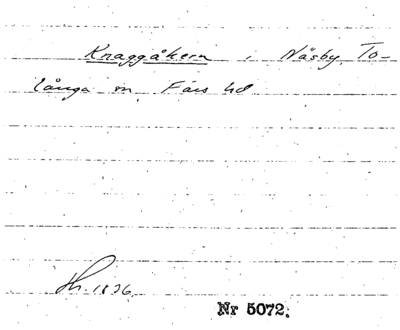 Knaggåkern i Näsby, To-
långa sn, Färs hd
Th. 1836.
Nr 5072.